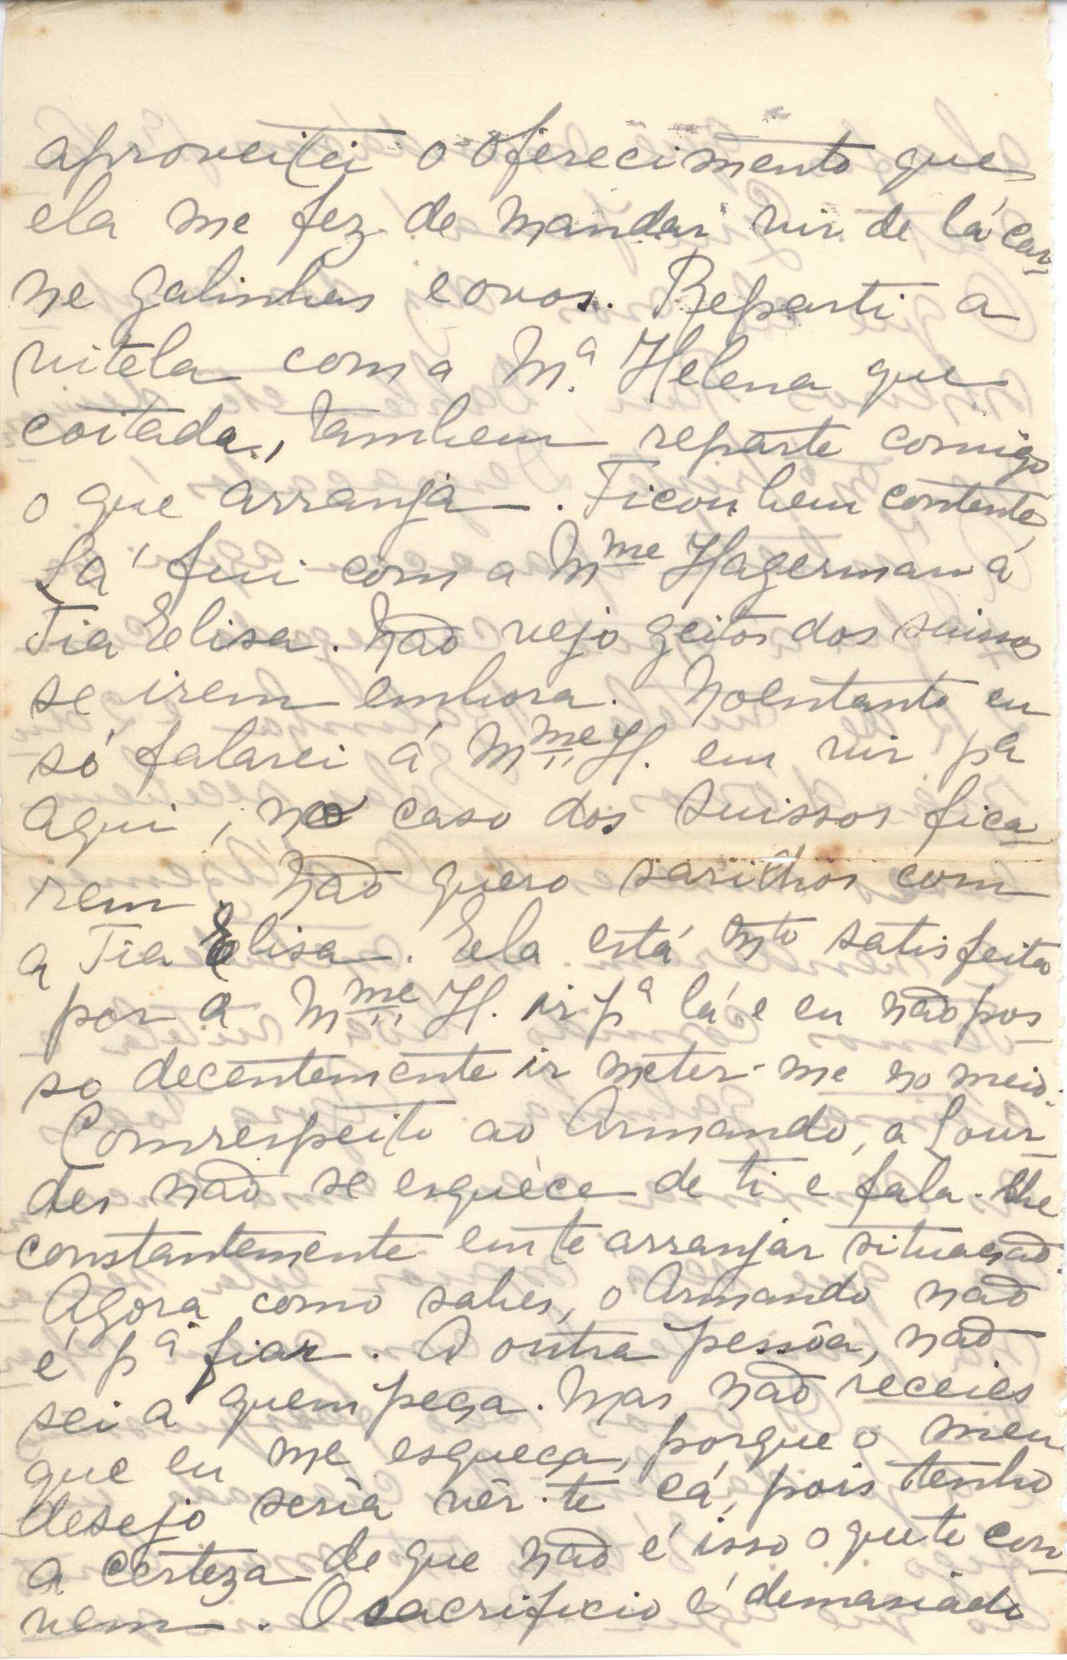 aproveitei o oferecimento que
ela me fez de mandar vir de lá car-
ne galinhas e ovos. Reparti a
vitela com a M.ª Helena que
coitada, tambem reparte comigo
o que arranja. Ficou bem contente.
Lá fui com a Mme Hagerman á
Tia Elisa. Não vejo geitos dos suissos
se irem embora. Noentanto eu
só falarei á Mme H. em vir pª
aqui, no caso dos suissos fica-
rem. Não quero sarilhos com
a Tia Elisa. Ela está mto satisfeita
por a Mme H. ir pª lá e eu não pos-
so decentemente ir meter-me no meio.
Comrespeito ao Armando, a Lour-
des não se esquéce de ti e fala-lhe
constantemente em te arranjar situação.
Agora como sabes, o Armando não
é pª fiar. A outra pessôa, não
sei a quem peça. Mas não receies
que eu me esqueça, porque o meu
desejo seria vêr-te cá, pois tenho
a certeza de que não é isso o que te con-
vem. O sacrificio é demasiado